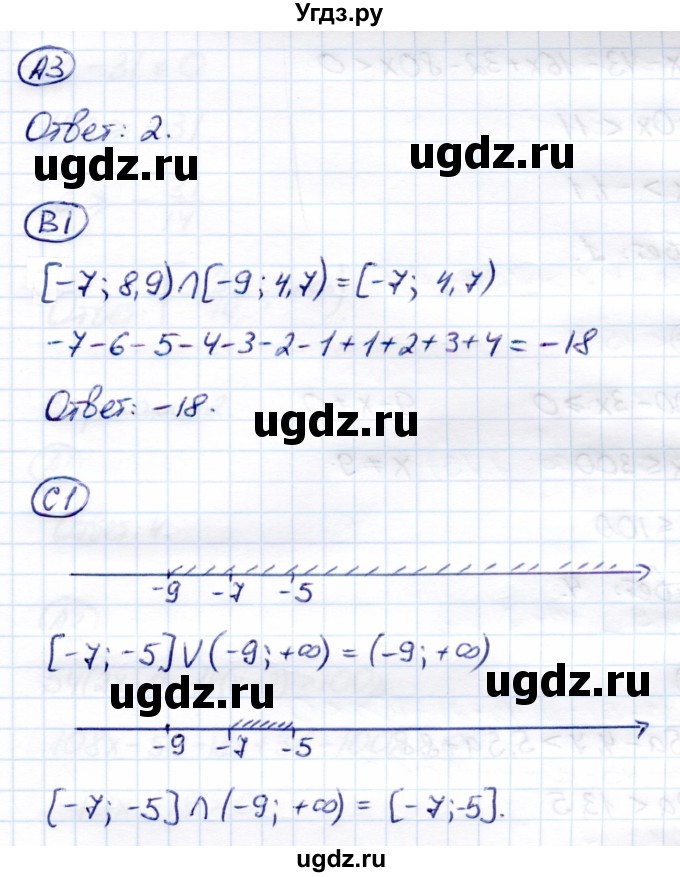 Угдз.ру
А3
Ответ: 2.
ugdz.ru ugdz.ru
В1
[-7; 8,9)∩[-9; 4,7)=[-7; 4,7)
-7-6-5-4-3-2-1+1+2+3+4=-18
Ответ: -18.
ugdz.ru
С1
-9 -7 -5
[-7; -5]∪(-9; +∞)=(-9; +∞)
ugdz.ru ugdz.ru
-9 -7 -5
[-7; -5]∩(-9; +∞)=[-7;-5].
ugdz.ru